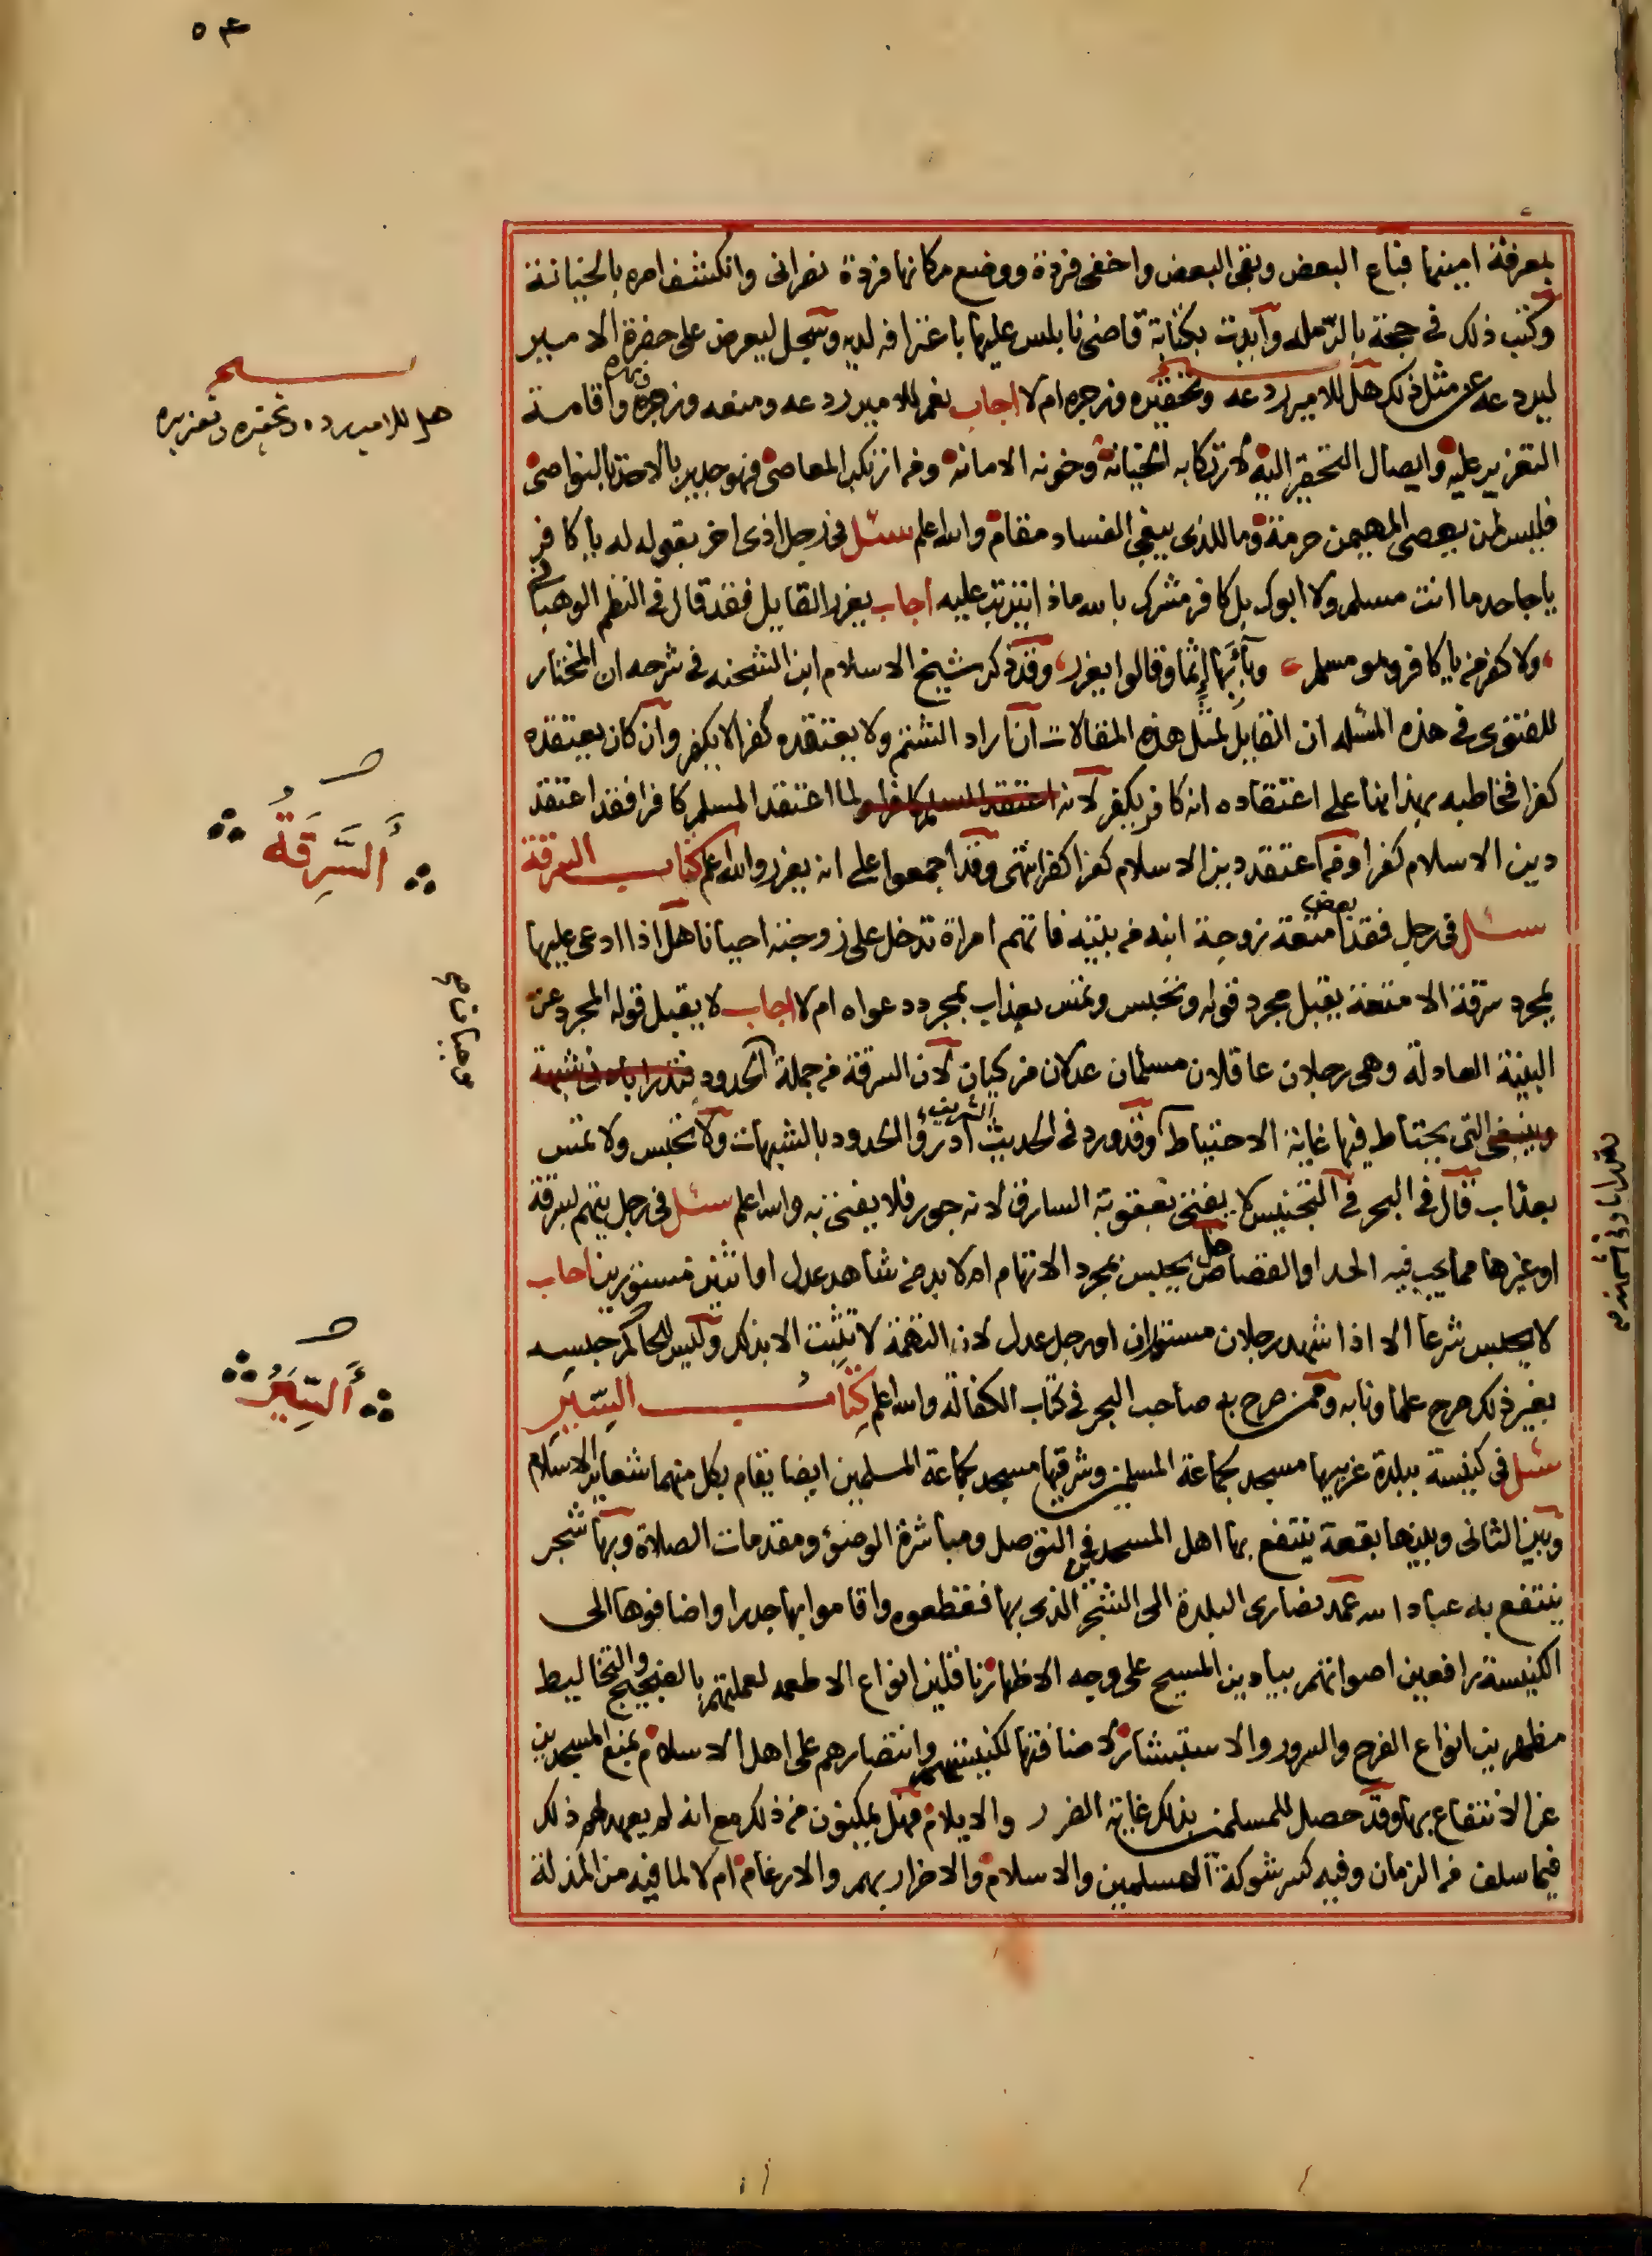 ٥٤
بمعرفة امينها فباع البعض وبقى البعض واخفى فردة ووضع مكانها فردة نصرانى وانكشف امره بالخيانة
وكتب ذلك فى حجة بالرمله وايدت بكتابة قاضى نابلس عليها باعترافه لديه وسجل ليعرض على حضرة الامير
ليردعه عن مثل ذلك هل للامير ردعه وتحقيره وزجره ام لا اجاب نعم للامير ردعه ومنعه وزجره واقامة
هل للامير رده وتحقيره وتعزيره
التعزير عليه وايصال التحقير اليه لارتكابه الخيانة وخونه الامانه ومن ارتكب المعاصى فهو جدير بالاخذ بالنواصى
فليس لمن يعصى المهيمن حرمة وما للذى يبغى الفساد مقام والله اعلم سئل فى رجل اذى اخر بقوله له يا كافر
يا جاحد ما انت مسلم ولا ابوك بل كافر مشرك بالله ماذا يترتب عليه اجاب يعزر القايل فقد قال فى النظم الوهبانى
ولا كفر من يا كافر وهو مسلم وياثم اثما وقالوا يعزر وقد ذكر شيخ الاسلام ابن الشحنه فى شرحه ان المختار
للفتوى فى هذه المسئله ان القايل لمثل هذه المقالات ان اراد الشتم ولا يعتقده كفرا لا يكفر وان كان يعتقده
كفرا فخاطبه بهذا بنا على اعتقاده انه كافر يكفر لانه اعتقد المسلم كافرا ولما اعتقد المسلم كافرا فقد اعتقد
دين الاسلام كفرا ومن اعتقد دين الاسلام كفرا كفر انتهى وقد اجمعوا على انه يعزر والله اعلم كتاب السرقة
السرقة
سئل فى رجل فقد بعض امتعة زوجة ابنه من بيته فاتهم امراة تدخل على زوجته احيانا هل اذا ادعى عليها
بمجرد سرقة الامتعة يقبل مجرد قوله وتحبس وتمس بعذاب بمجرد دعواه ام لا اجاب لا يقبل قوله المجرد عن
البينة العادلة وهى رجلان عاقلان مسلمان عدلان مزكيان لان السرقة من جملة الحدود تندرا بادنى شبهة
وينبغى التى يحتاط فيها غاية الاحتياط وقد ورد فى الحديث الشريف ادرؤا الحدود بالشبهات ولا تحبس ولا تمس
بعذاب قال فى البحر فى التجنيس لا يفتى بعقوبة السارق لانه جور فلا يفتى به والله اعلم سئل فى رجل يتهم بسرقة
او غيرها مما يجب فيه الحد او القصاص هل يحبس بمجرد الاتهام ام لا بد من شاهد عدل او اثنين مستورين اجاب
لا يحبس شرعا الا اذا شهد رجلان مستوران او رجل عدل لان التهمة لا تثبت الا بذلك وليس للحاكم حبسه
بغير ذلك صرح علماونا به وممن صرح به صاحب البحر فى كتاب الكفالة والله اعلم كتاب السير
السير
سئل فى كنيسة ببلدة غربيها مسجد بجماعة المسلمين وشرقيها مسجد بجماعة المسلمين ايضا يقام بكل منهما شعاير الاسلام
وبين الثانى وبينها بقعة ينتفع بها اهل المسجد فى التوصل ومباشرة الوضؤ ومقدمات الصلاة وبها شجر
ينتفع به عباد الله عمد نصارى البلدة الى الشجر الذى بها فقطعوه واقاموا بها جدرا واضافوها الى
الكنيسة رافعين اصواتهم بيا دين المسيح على وجه الاظهار ناقلين انواع الاطعمه لعملتهم بالضجيج والتخاليط
مظهرين انواع الفرح والسرور والاستبشار لاضافتها لكنيستهم وانتصارهم على اهل الاسلام بمنع المسجدين
عن الانتفاع بها وقد حصل للمسلمين بذلك غاية الضرر والايلام فهل يمكنون من ذلك مع انه لم يعهد لهم ذلك
فيما سلف من الزمان وفيه كسر شوكة المسلمين والاسلام والاضرار بهم والارغام ام لا لما فيه من المذلة